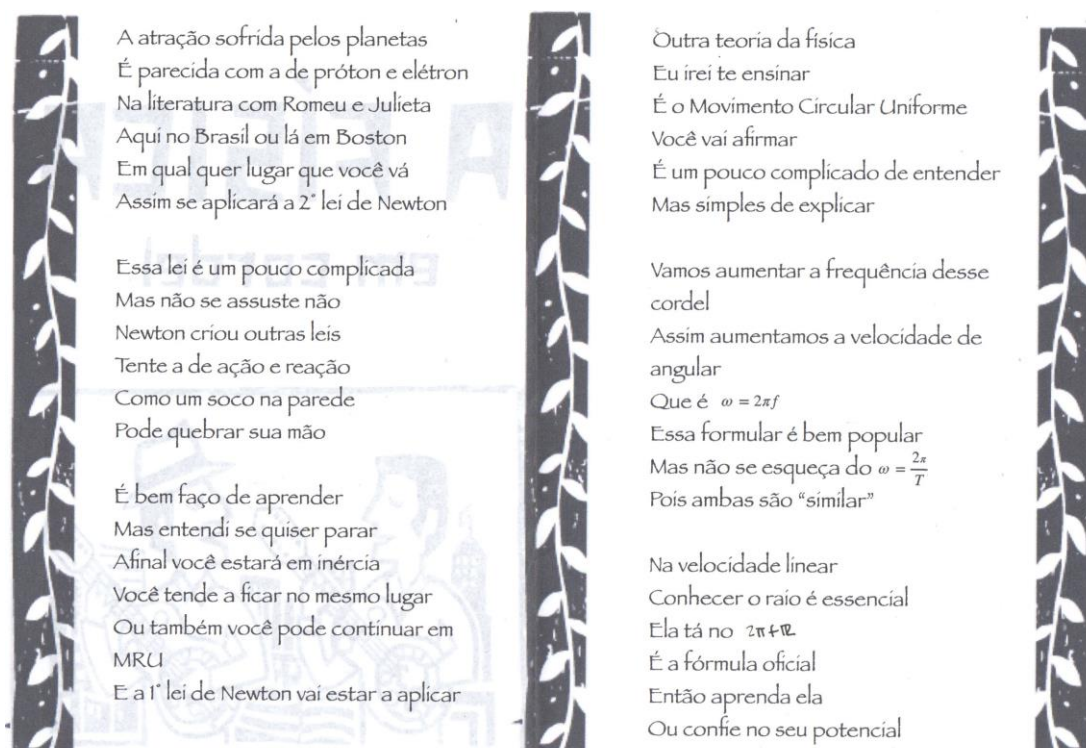 A atração sofrida pelos planetas
É parecida com a de próton e elétron
Na literatura com Romeu e Julieta
Aqui no Brasil ou lá em Boston
Em qual quer lugar que você vá
Assim se aplicará a 2ª lei de Newton
Essa lei é um pouco complicada
Mas não se assuste não
Newton criou outras leis
Tente a de ação e reação
Como um soco na parede
Pode quebrar sua mão
É bem faço de aprender
Mas entendi se quiser parar
Afinal você estará em inércia
Você tende a ficar no mesmo lugar
Ou também você pode continuar em
MRU
E a 1ª lei de Newton vai estar a aplicar
Outra teoria da física
Eu irei te ensinar
É o Movimento Circular Uniforme
Você vai afirmar
É um pouco complicado de entender
Mas simples de explicar
Vamos aumentar a frequência desse
cordel
Assim aumentamos a velocidade de
angular
Que é ω = 2πf
Essa formular é bem popular
Mas não se esqueça do ω = 2π/T
Pois ambas são “similar”
Na velocidade linear
Conhecer o raio é essencial
Ela tá no 2πfR
É a fórmula oficial
Então aprenda ela
Ou confie no seu potencial
A FÍSICA
em cordel